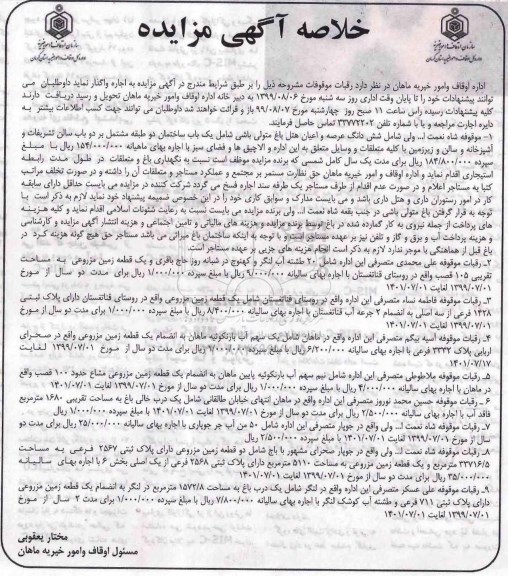 خلاصه آگهی مزایده
اداره اوقاف وامور خیریه ماهان در نظر دارد رقبات موقوفات مشروحه ذیل را بر طبق شرایط مندرج در آگهی مزایده به اجاره واگذار نماید داوطلبان می
توانند پیشنهادات خود را تا پایان وقت اداری روز سه شنبه مورخ ۱۳۹۹/۰۸/۰۶ به دبیر خانه اداره اوقاف وامور خیریه ماهان تحویل و رسید دریافت دارند
کلیه پیشنهادات رسیده راس ساعت ۱۱ صبح روز چهارشنبه مورخ ۹۹/۰۸/۰۷ باز و قرائت خواهند شد داوطلبان می توانند جهت کسب اطلاعات بیشتر به
دایره اجارت مراجعه و یا با شماره تلفن ۳۳۷۷۷۲۰۲ تماس حاصل فرمایند.
۱- موقوفه شاه نعمت ا... ولی شامل شش دانگ عرصه و اعیان هتل باغ متولی باشی شامل یک باب ساختمان دو طبقه مشتمل بر دو باب سالن تشریفات و
آشپزخانه و سالن و زیرزمین با کلیه متعلقات و وسایل متعلق به این اداره و الاچیق ها و فضای سبز با اجاره بهای ماهیانه ۱۵۴/۰۰۰/۰۰۰ ریال با مبلغ
سپرده ۱۸۴/۸۰۰/۰۰۰ ریال برای مدت یک سال کامل شمسی که برنده مزایده موظف است نسبت به نگهداری باغ و متعلقات در طول مدت رابطه
استیجاری اقدام نماید و اداره اوقاف و امور خیریه ماهان حق نظارت مستمر بر مجتمع و عملکرد مستاجر و متعلقات آن را داشته و در صورت تخلف مراتب
کتبا به مستاجر اعلام و در صورت عدم اقدام از طرف مستاجر یک طرفه سند اجاره فسخ می گردد شرکت کننده در مزایده می بایست حداقل دارای سابقه
کار در امور رستوران داری و هتل داری باشد و می بایست مدارک و سوابق کاری خود را در این خصوص ضمیمه پیشنهاد خود نماید لازم به ذکر است با
توجه به قرار گرفتن باغ متولی باشی در جنب بقعه شاه نعمت ا... ولی برنده مزایده می بایست نسبت به رعایت شئونات اسلامی اقدام نماید و کلیه هزینه
های پرداخت از جمله نیروی به کار گمارده شده در باغ توسط برنده مزایده و هزینه های مالیاتی و تامین اجتماعی و هزینه انتشار آگهی مزایده و کارشناسی
و هزینه پرداخت آب و برق و گاز و تلفن نیز بر عهده مستاجر است و با توجه به اینکه ساختمان باغ میراثی می باشد مستاجر حق هیچ گونه هزینه کرد در
باغ قبل از هماهنگی با موجر ندارد لازم به ذکر است انجام هزینه های جزیی بر عهده مستاجر است.
۲- رقبات موقوفه علی محمدی متصرفی این اداره شامل ۲۰ طشته آب لنگر و کهنوج در شبانه روز جاج باقری و یک قطعه زمین مزروعی به مساحت
تقریبی ۱۰۵ قصب واقع در روستای قناتغستان با اجاره بهای سالیانه ۹/۰۰۰/۰۰۰ ریال با مبلغ سپرده ۱/۰۰۰/۰۰۰ ریال برای مدت دو سال از مورخ
۱۳۹۹/۰۷/۰۱ لغایت ۱۴۰۱/۰۷/۰۱
۳- رقبات موقوفه فاطمه نساء متصرفی این اداره واقع در روستای قناتغستان شامل یک قطعه زمین مزروعی واقع در روستای قناتغستان دارای پلاک ثبتی
۱۴۲۸ فرعی از سه اصلی به انضمام ۲ جرعه آب قناتغستان با اجاره بهای سالیانه ۸/۴۰۰/۰۰۰ ریال با مبلغ سپرده ۱/۰۰۰/۰۰۰ برای مدت دو سال از مورخ
۱۳۹۹/۰۷/۰۱ لغایت ۱۴۰۱/۰۷/۰۱
۴- رقبات موقوفه آسیه بیگم متصرفی این اداره واقع در ماهان شامل یک سهم آب بازنکوئیه ماهان به انضمام یک قطعه زمین مزروعی واقع در صحرای
اربابی پلاک ۳۳۳۲ فرعی با اجاره بهای سالیانه ۶/۲۰۰/۰۰۰ ریال با مبلغ سپرده ۱/۰۰۰/۰۰۰ ریال برای مدت دو سال از مورخ ۱۳۹۹/۰۷/۰۱ لغایت
۱۴۰۱/۰۷/۱۷
۵- رقبات موقوفه ملاطوطی متصرفی این اداره واقع در ماهان شامل نیم سهم آب بازنکوئیه پایین ماهان به انضمام یک قطعه زمین مزروعی مشاع حدود ۱۰۰ قصب واقع
در ماهان با اجاره بهای سالیانه ۴/۰۰۰/۰۰۰ ریال با مبلغ سپرده ۱/۰۰۰/۰۰۰ ریال برای مدت دو سال از مورخ ۱۳۹۹/۰۷/۰۱ لغایت ۱۴۰۱/۰۷/۰۱
۶- رقبات موقوفه حسین محمد نوروز متصرفی این اداره واقع در ماهان انتهای خیابان طالقانی شامل یک درب خالی باغ به مساحت تقریبی ۱۶۸۰ مترمربع
فاقد آب با اجاره بهای سالیانه ۲/۵۰۰/۰۰۰ ریال برای مدت دو سال از مورخ ۱۳۹۹/۰۷/۰۱ لغایت ۱۴۰۱/۰۷/۰۱ با مبلغ سپرده ۱/۰۰۰/۰۰۰ ریال
۷- رقبات موقوفه شاه نعمت ا... ولی واقع در جوپار متصرفی این اداره شامل ۵۰ من آب جر جوپاری با اجاره بهای سالیانه ۲۵/۰۰۰/۰۰۰ ریال برای مدت دو
سال از مورخ ۱۳۹۹/۰۷/۰۱ لغایت ۱۴۰۱/۰۷/۰۱ با مبلغ سپرده ۲/۵۰۰/۰۰۰ ریال
۸- رقبات موقوفه شاه نعمت ا... ولی واقع در جوپار صحرای مشهور با باغ شامل دو قطعه زمین مزروعی دارای پلاک ثبتی ۲۵۶۷ فرعی به مساحت
۲۳۷۱۶/۵ مترمربع و یک قطعه زمین مزروعی به مساحت ۵۱۱۰ مترمربع دارای پلاک ثبتی ۲۵۶۸ فرعی از یک اصلی بخش ۶ با اجاره بهای سالیانه
۳۵/۰۰۰/۰۰۰ ریال برای مدت دو سال از مورخ ۱۳۹۹/۰۷/۰۱ لغایت ۱۴۰۱/۰۷/۰۱
۹- رقبات موقوفه علی عسکر متصرفی این اداره واقع در لنگر شامل یک درب باغ به مساحت ۱۵۷۲/۸ مترمربع در لنگر به انضمام یک قطعه زمین مزروعی
دارای پلاک ثبتی ۷۱۱ فرعی و طشته آب کوشک لنگر با اجاره بهای سالیانه ۷/۸۰۰/۰۰۰ ریال با مبلغ سپرده ۱/۰۰۰/۰۰۰ برای مدت ۲ سال از مورخ
۱۳۹۹/۰۷/۰۱ لغایت ۱۴۰۱/۰۷/۰۱
مختار یعقوبی
مسئول اوقاف وامور خیریه ماهان